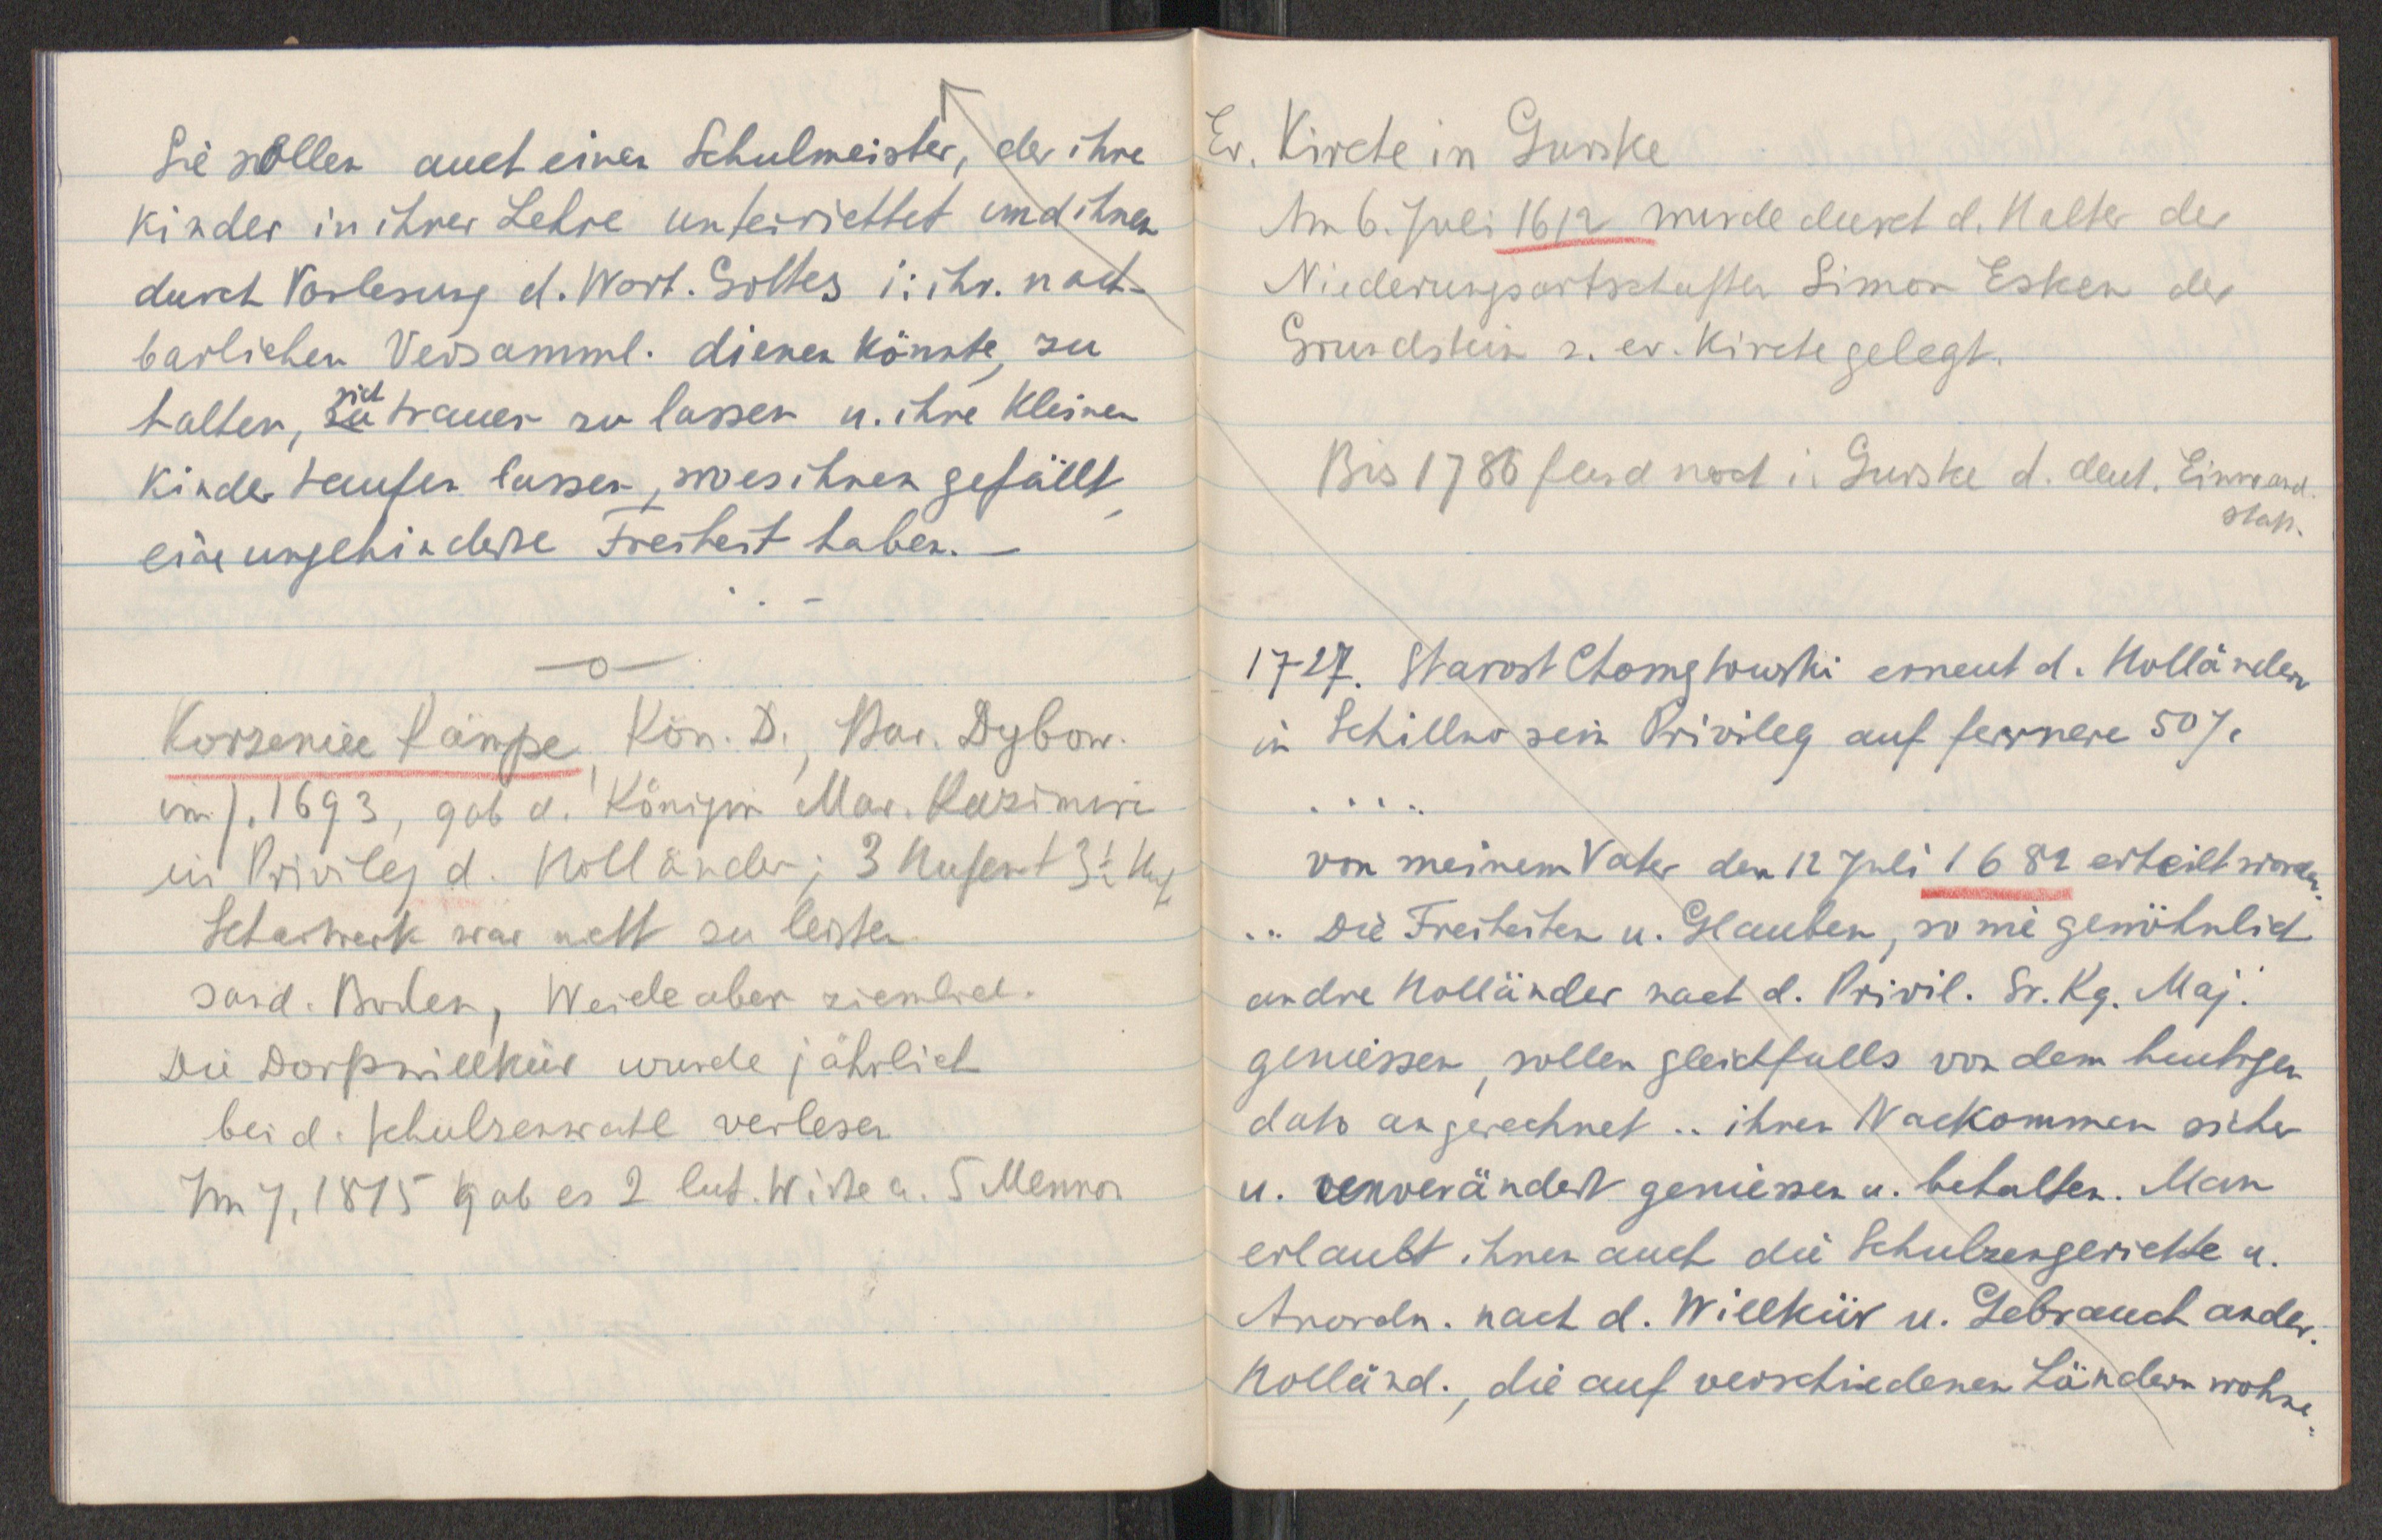 Sie sollen auch einen Schulmeister, der ihre
Kinder in ihrer Lehre unterrichtet und ihnen
durch Vorlesung d. Wort. Gottes i: ihr. nach-
barlichen Versamml. dienen könnte, zu
halten, sich trauen zu lassen u. ihre kleinen
Kinder taufen lassen, wo es ihnen gefällt,
eine ungehinderte Freiheit haben. —
—o—
Korzeniec Kämpe, Kön. D., Bar. Dybow.
im J. 1693, gab d. Königin Mar. Kazimira
ein Privileg d. Holländer; 3 Hufen + 3½ Huf
Scharwerk war nicht zu leisten
sand. Boden, Weide aber ziemlich.
Die Dorfswillkür wurde jährlich
bei d. Schulzenwahl verlesen
Im J. 1815 gab es 2 lut. Wirte u. 5 Mennon
Ev. Kirche in Gurske
Am 6. Juli 1612 wurde durch d. Halter der
Niederungsortschaften Simon Esken der
Grundstein z. ev. Kirche gelegt.
Bis 1786 fand noch i. Gurske d. deut. Einwand.
statt.
1727. Starost Chomętowski erneut d. Holländern
in Schillno sein Privileg auf fernere 50 J.
.....
von meinem Vater den 12 Juli 1682 erteilt worden.
.. Die Freiheiten u. Glauben, so wie gewöhnlich
andre Holländer nach d. Privil. Sr. Kg. Maj.
geniessen, sollen gleichfalls von dem heutigen
dato angerechnet .. ihren Nackommen sicher
u. unverändert geniessen u. behalten. Man
erlaubt ihnen auch die Schulzengerichte u.
Anordn. nach d. Willkür u. Gebrauch ander.
Holländ., die auf verschiedenen Ländern wohne.